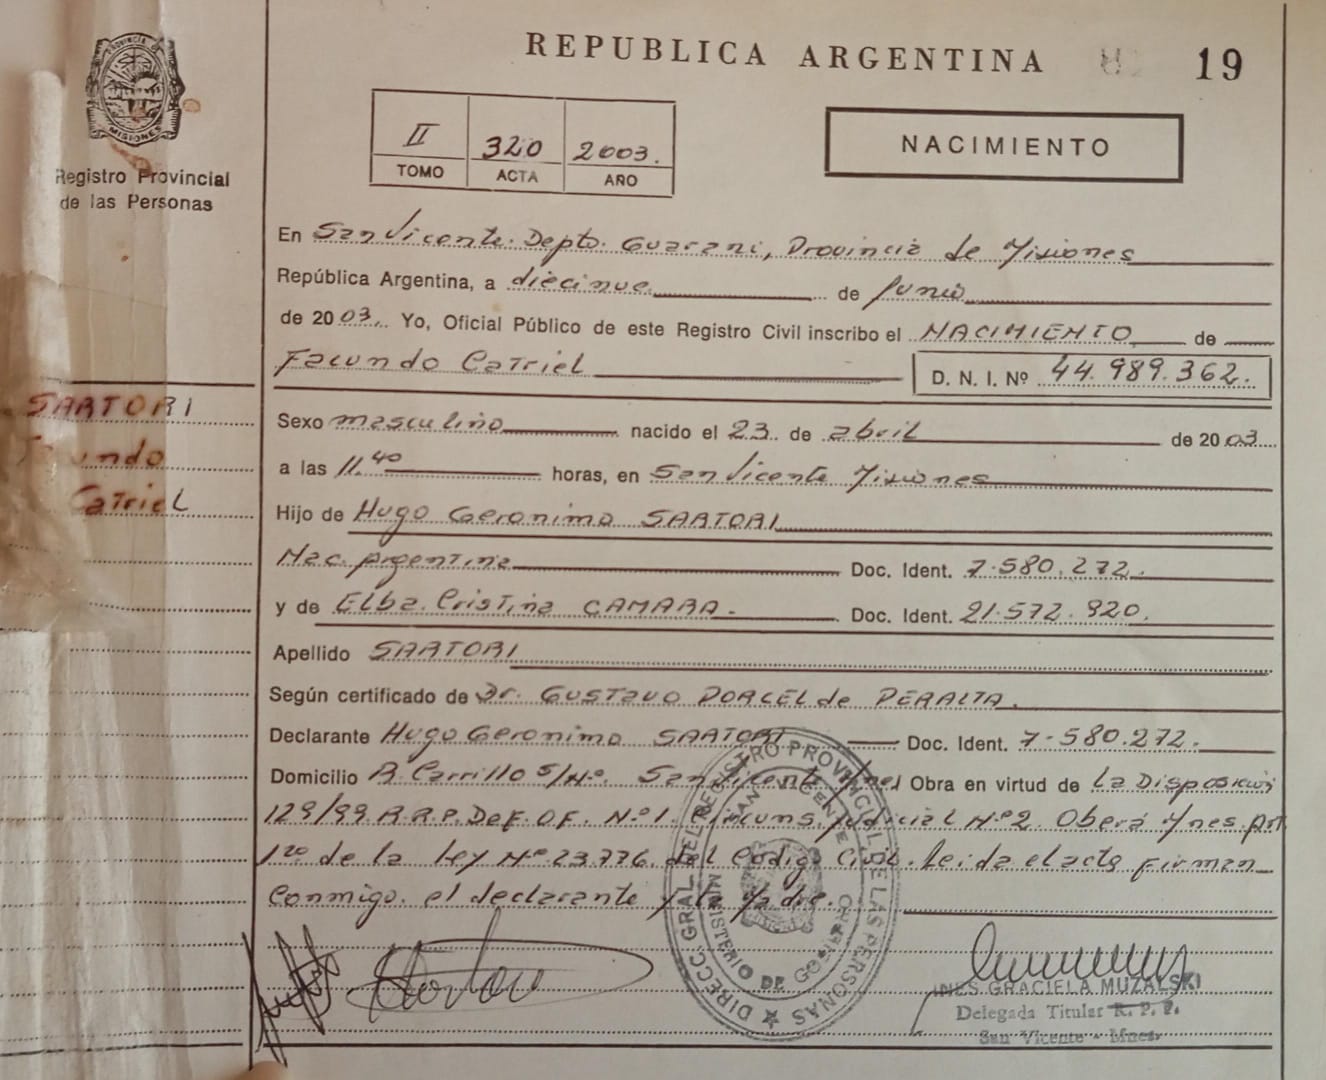 PROVINCIA DE
MISIONES
Registro Provincial
de las Personas
REPUBLICA ARGENTINA
19
II
320
2003.
TOMO
ACTA
AÑO
NACIMIENTO
En San Vicente. Depto. Guarani, Provincia de Misiones
República Argentina, a diecinue. de Junio
de 2003. Yo, Oficial Público de este Registro Civil inscribo el NACIMIENTO de
Facundo Catriel D. N. I. Nº 44.989.362.
SARTORI
Catriel
Sexo masculino nacido el 23 de abril de 2003
a las 11.40 horas, en San Vicente Misiones
Hijo de Hugo Geronimo SARTORI
Nac. Argentina Doc. Ident. 7.580.272.
y de Elba Cristina CAMARA. Doc. Ident. 21.572.920.
Apellido SARTORI
Según certificado de Dr. GUSTAVO PORCEL de PERALTA.
Declarante Hugo Geronimo SARTORI Doc. Ident. 7.580.272.
Domicilio R. Carrillo S/Nº. San Vicente Mnes Obra en virtud de La Disposición
129/99. R.R.P. Def. Of. Nº1. Circuns. Judicial Nº2 Oberá Mnes. Art.
1ro de la Ley Nº 23.776 del Codigo Civil. Leida el acta Firman
conmigo. el declarante y la Madre.
DIRECC. GRAL. DEL REGISTRO PROVINCIAL DE LAS PERSONAS
SAN VICENTE
MINISTERIO DE GOBIERNO
INES GRACIELA MUZALSKI
Delegada Titular R. P. P.
San Vicente - Mnes.